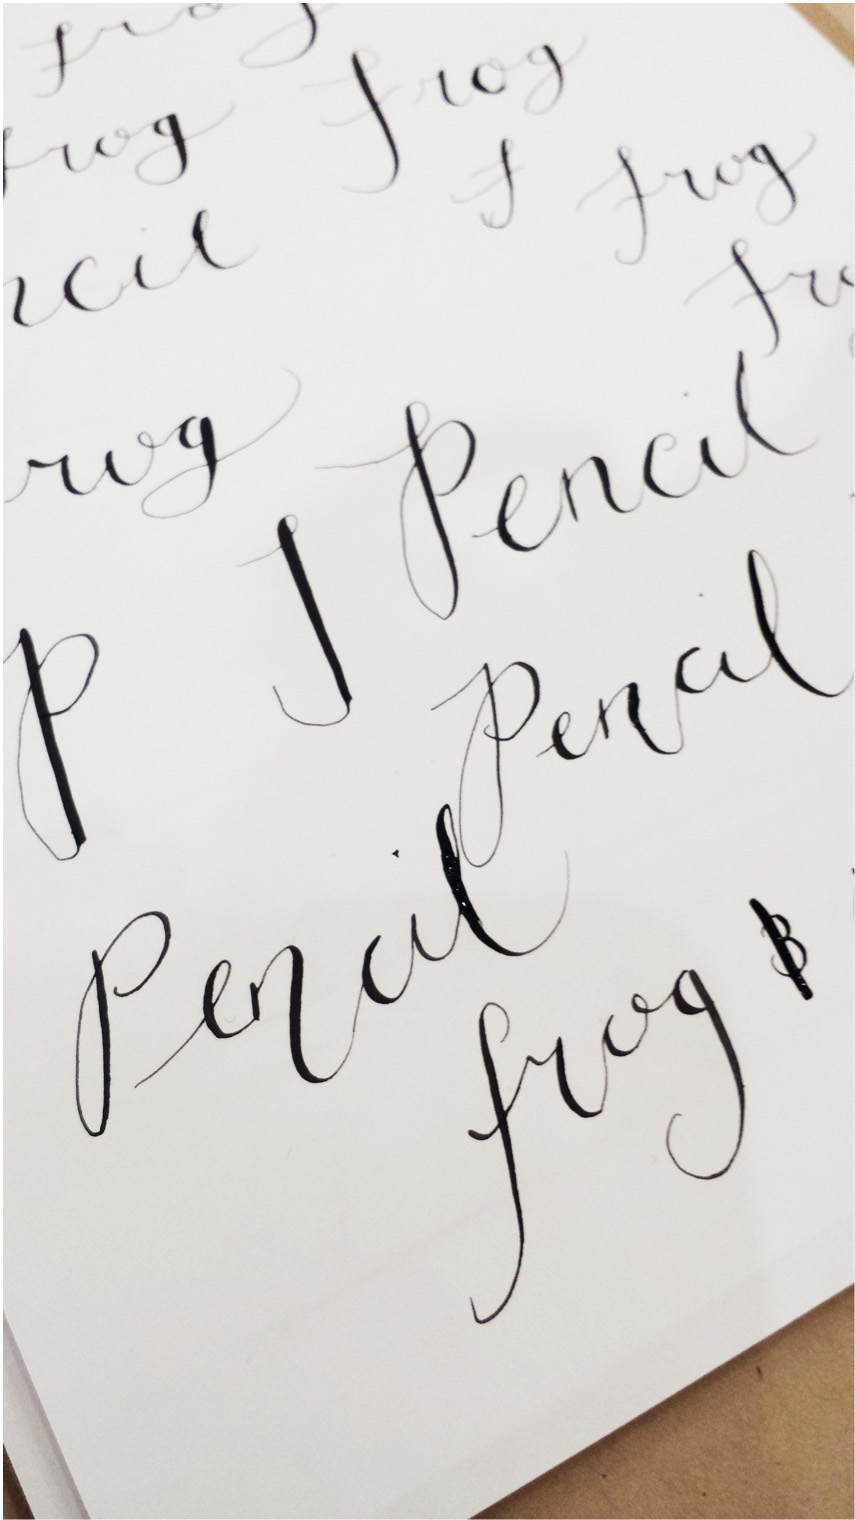 frog
frog frog
f frog
ncil
fro
rog
Pencil
P J
Pencil
Pencil
B
frog